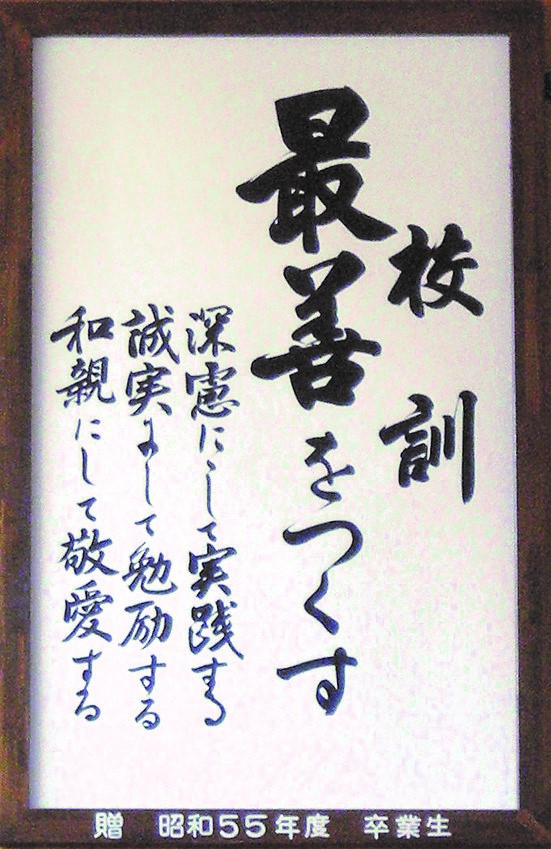 校訓
最善をつくす
深慮にして実践する
誠実にして勉励する
和親にして敬愛する
贈 昭和55年度 卒業生